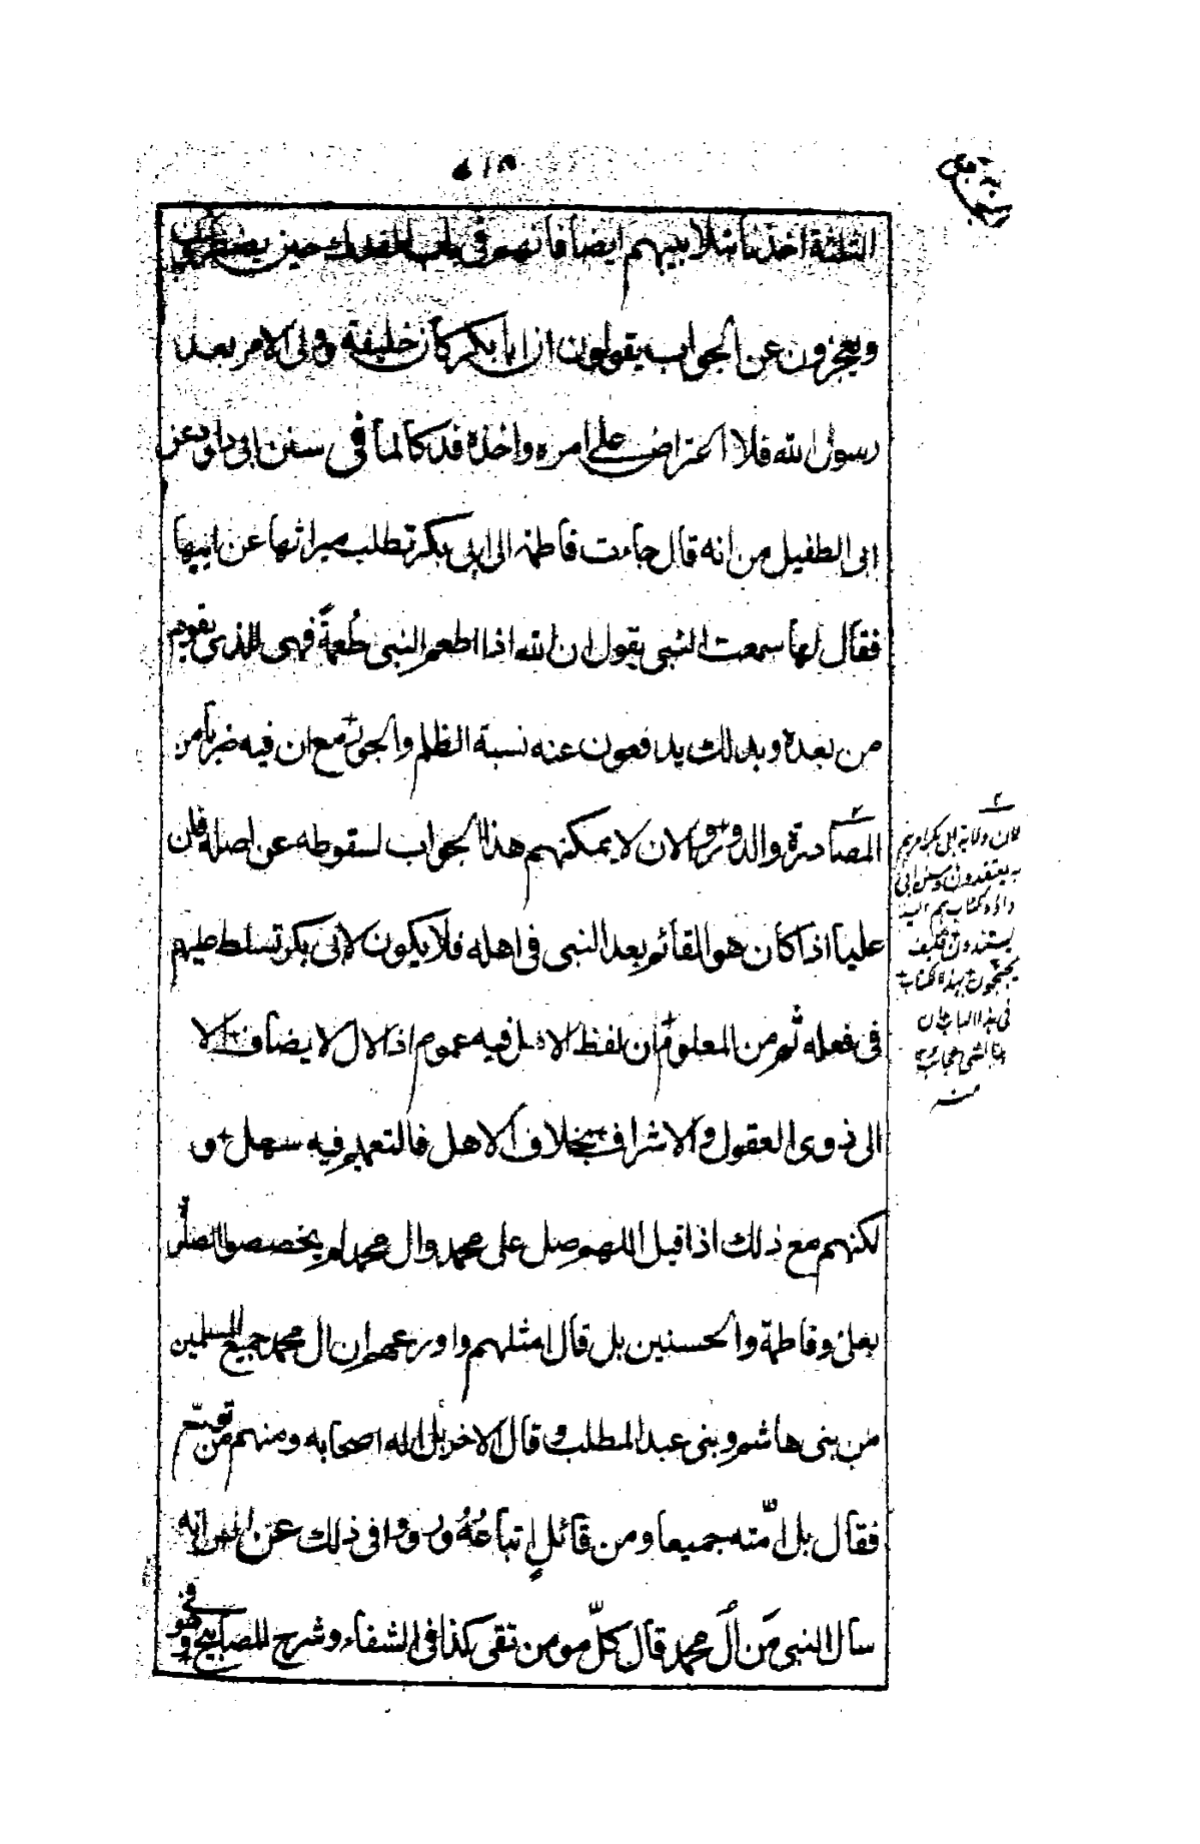 الثلثة اخذنا بتلابيبهم ايضا فانهم فى باب الفدك حين
ويعجزون عن الجواب يقولون ان ابا بكر كان خليفة ولى الامر بعد
رسول الله فلا اعتراض على امره واخذه فدكا لما فى سنن ابى داود عن
ابى الطفيل من انه قال جاءت فاطمة الى ابى بكر تطلب ميراثها عن ابيها
فقال لها سمعت النبى يقول ان لله اذا اطعم النبى طُعمةً فهى للذى يقوم
من بعده وبذلك يدفعون عنه نسبة الظلم والجور مع ان فيه ضربا من
المصادرة والدور والان لا يمكنهم هذا الجواب لسقوطه عن اصله فان
عليا اذا كان هو القائم بعد النبى فى اهله فلا يكون لابى بكر تسلط عليهم
فى فعله ثم من المعلوم ان لفظ الاهل فيه عموم اذ الال لا يضاف الا
الى ذوى العقول والاشراف بخلاف الاهل فالتعميم فيه سهل و
لكنهم مع ذلك اذا قيل اللهم صل على محمد وال محمد لم يخصصوا الصلوة
بعلى وفاطمة والحسنين بل قال امثلهم واورعهم ان ال محمد جميع المسلمين
من بنى هاشم وبنى عبد المطلب وقال الاخر بل اله اصحابه ومنهم من توسّع
فقال بل امّته جميعا ومن قائلٍ اتباعُهُ ورووا فى ذلك عن انس انه
سال النبى مَن آل محمد قال كلّ مومن تقى كذا فى الشفاء وشرح المصابيح وهو فى
لان ولاية ابى بكر امر هم
به يعتقدون وسنن ابى
داود كتاب هم اليه
يستندون فكيف
يحتجون بهذا الكتاب
فى هذا الباب ان
هذا لشئ عجاب
منه